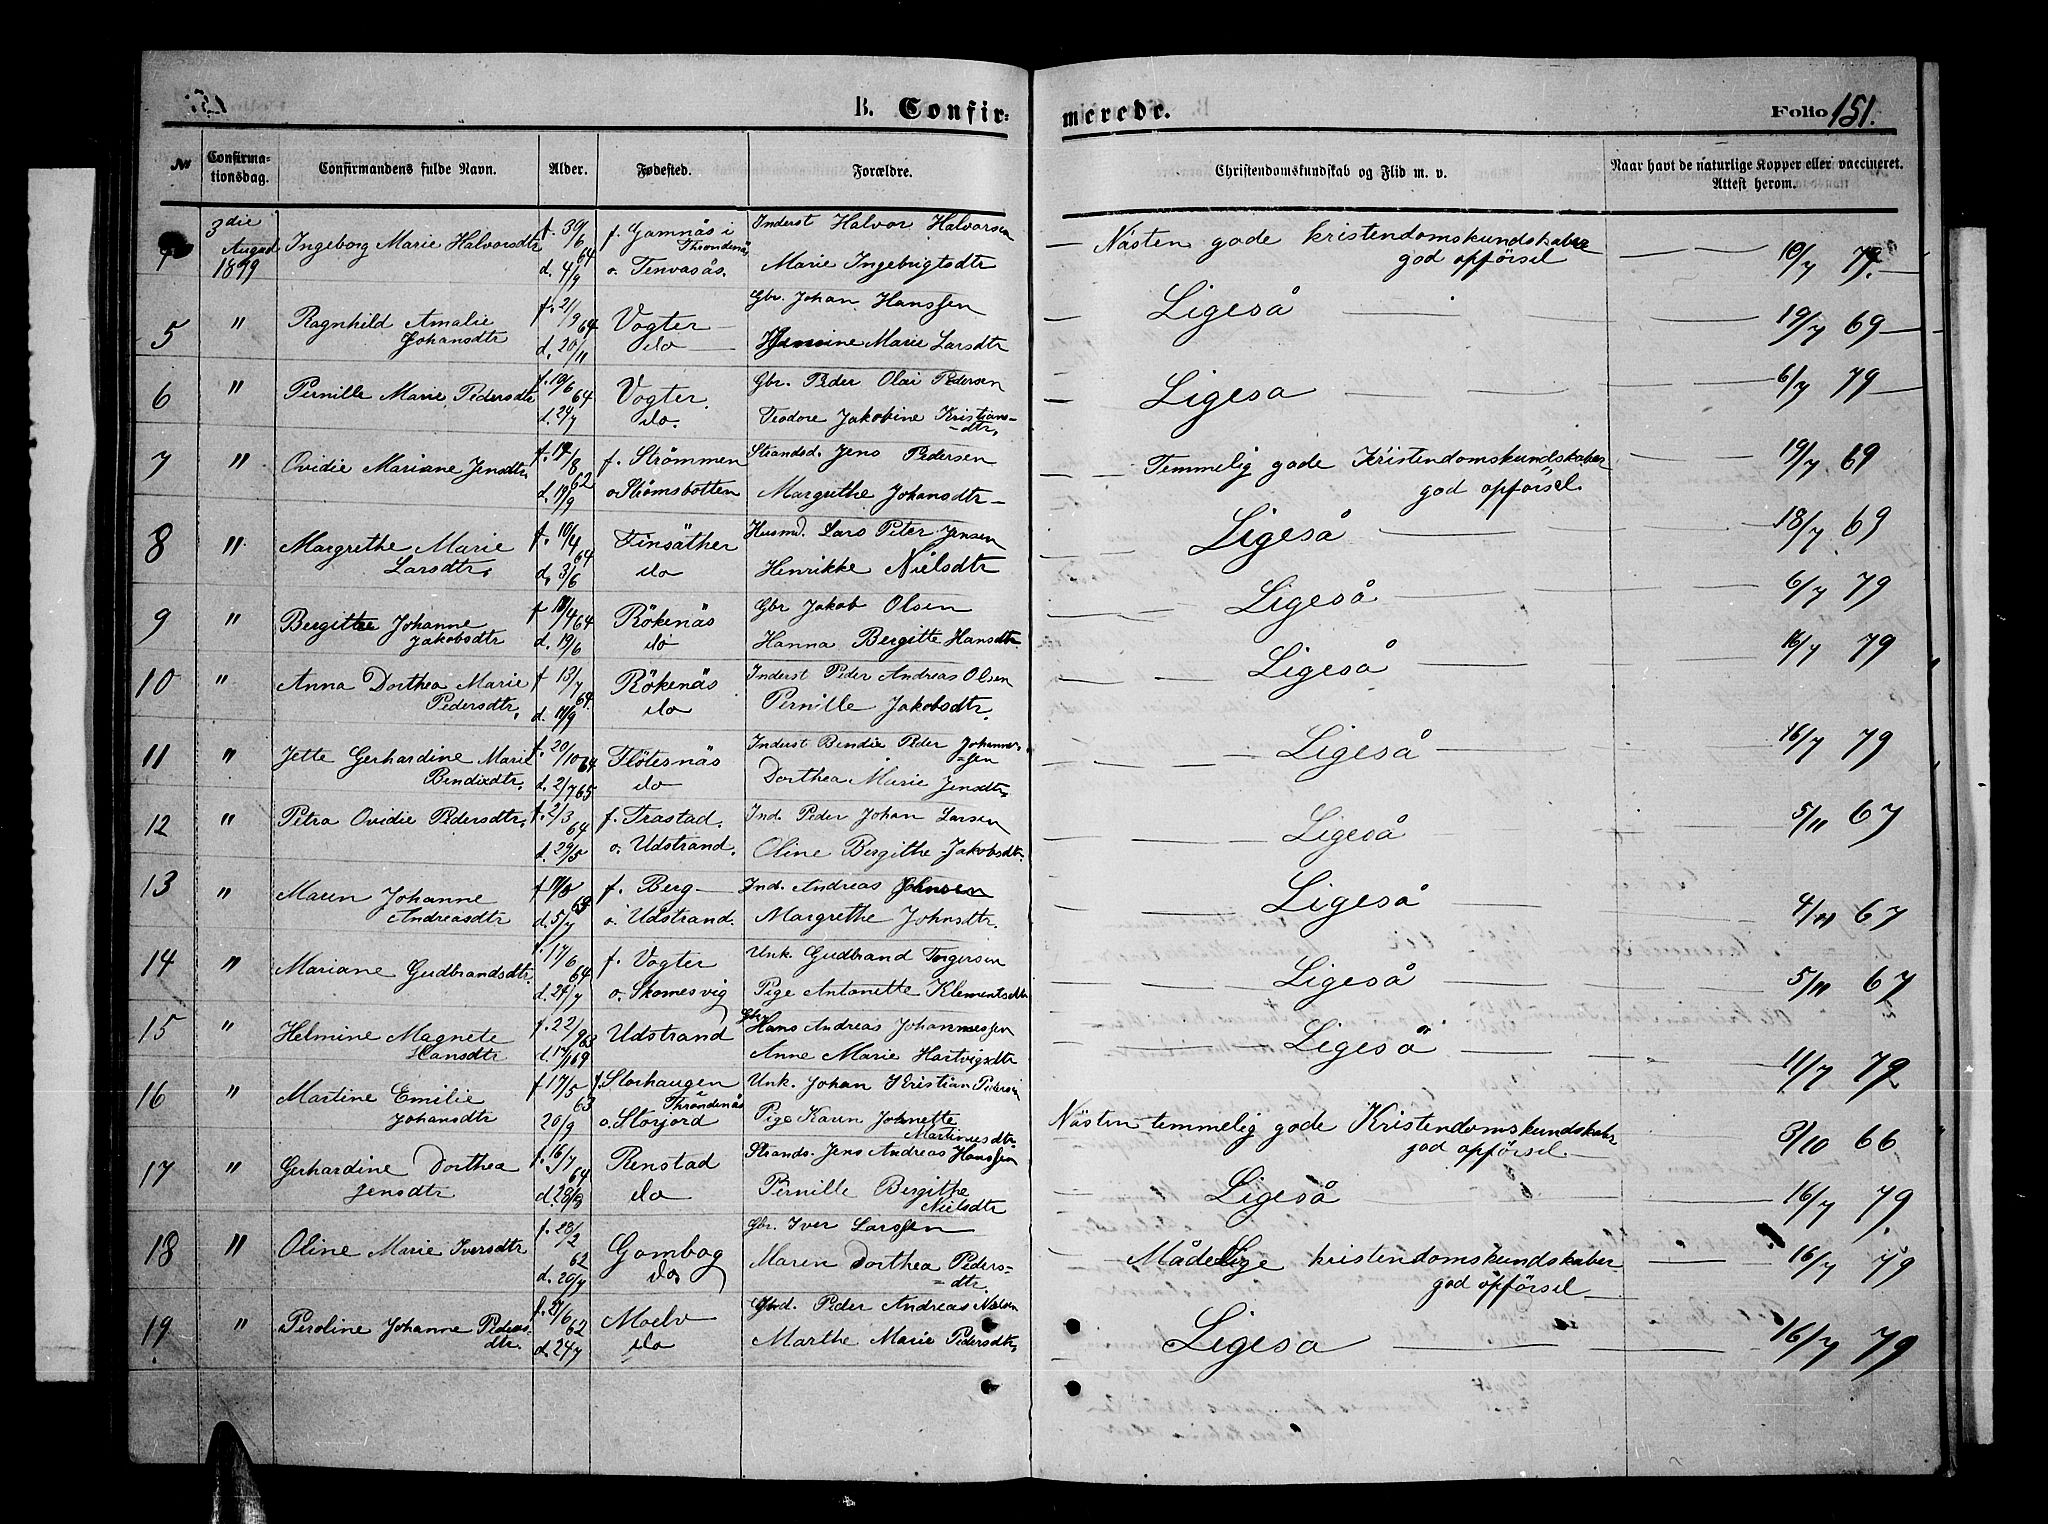 B. Confir=
merede.
Folio 151.
No
Confirma-
tionsdag.
Confirmandens fulde Navn.
Alder.
Fødested.
Forældre.
Christendomskundskab og Flid m. v.
Naar havt de naturlige Kopper eller vaccineret.
Attest herom.
3die August 1879
Ingeborg Marie Halvorsdtr
f. 30/6 64
d. 4/9
f. Gamnäs i Throndenäs
o. Tenvasås.
Inderst Halvor Halvorsen
Marie Ingebrigtsdtr
Nästen gode kristendomskundskaber
god opförsel
19/7 79.
5 " Ragnhild Amalie
Johansdtr
f. 21/9 64
d. 20/11
Vogter
do
Gbr. Johan Hanssen
Marie Larsdtr
Ligeså
19/7 69
6 " Pernille Marie Pedersdtr
f. 10/6 64
d. 24/7
Vogter.
do.
Gbr. Peder Olai Pedersen
Teodore Jakobine Kristians-
dtr.
Ligesa
6/7 79
7 " Ovidie Mariane Jensdtr
f. 14/8 62
d. 19/9
f. Strömmen
o. Strömsbotten
Strandsd. Jens Pedersen
Margrethe Johansdtr
Temmelig gode Kristendomskundskaber
god opförsel.
19/7 69
8 " Margrethe Marie
Larsdtr.
f. 10/4 64
d. 3/6
Finsäther
do
Husmd. Lars Peter Jensen
Henrikke Nielsdtr
Ligeså
18/7 69
9 " Bergitte Johanne
Jakobsdtr
f 18/4 64
d. 19/6
Rökenäs
do
Gbr Jakob Olsen
Hanna Bergitte Hansdtr
Ligeså
6/7 79
10 " Anna Dorthea Marie
Pedersdtr.
f 13/7 64.
d. 18/9
Rökenäs
do
Inderst Peder Andreas Olsen
Pernille Jakobsdtr.
Ligeså
16/7 79
11 " Jette Gerhardine Marie
Bendixdtr.
f. 20/10 64
d. 2/7 65
Flötesnäs
do
Inderst Bendix Peder Johannes-
sen
Dorthea Marie Jensdtr.
Ligeså
16/7 79
12 " Petra Ovidie Pedersdtr.
f. 2/3 64
d. 29/5
f. Trastad.
o. Udstrand.
Ind. Peder Johan Larsen
Oline Bergithe Jakobsdtr.
Ligeså
5/11 67
13 " Maren Johanne
Andreasdtr
d. 5/7
f. Berg
o. Udstrand.
Ind. Andreas Johnsen
Margrethe Johnsdtr.
Ligeså
4/11 67
14 " Mariane Gudbrandsdtr.
f. 17/6 64
d. 24/7
f. Vogter
o. Skomesvig
Unk. Gudbrand Torgersen
Pige Antonette Klementsdtr
Ligeså
5/11 67
15 " Helmine Magnete
Hansdtr
f. 22/9 63
Udstrand
Gbr. Hans Andreas Johannessen
Anne Marie Hartvigsdtr
Ligeså
11/7 79
16 " Martine Emilie
Johansdtr
f 17/5 63
20/9
f. Storhaugen i Throndenäs
o. Storjord
Unk. Johan Kristian Pedersen
Pige Karen Johnette
Martinusdtr.
Nästen temmelig gode Kristendomskundskaber
god opförsel.
3/10 66
17 " Gerhardine Dorthea
Jensdtr
f. 16/7 64
d. 28/8
Renstad
do
Strands. Jens Andreas Hanssen
Pernille Bergitte
Nielsdtr
Ligeså
16/7 79.
18 " Oline Marie Iversdtr
f. 28/2 62
d. 20/7
Gombog
do
Gbr. Iver Larssen
Maren Dorthea Peders-
dtr.
Mådelige kristendomskundskaber
god opförsel
16/7 79
19 " Peroline Johanne Peders-
dtr.
f. 21/6 62
d. 24/7
Moelv
do
Gbrd. Peder Andreas Nielsen
Marthe Marie Pedersdtr.
Ligesa
16/7 79